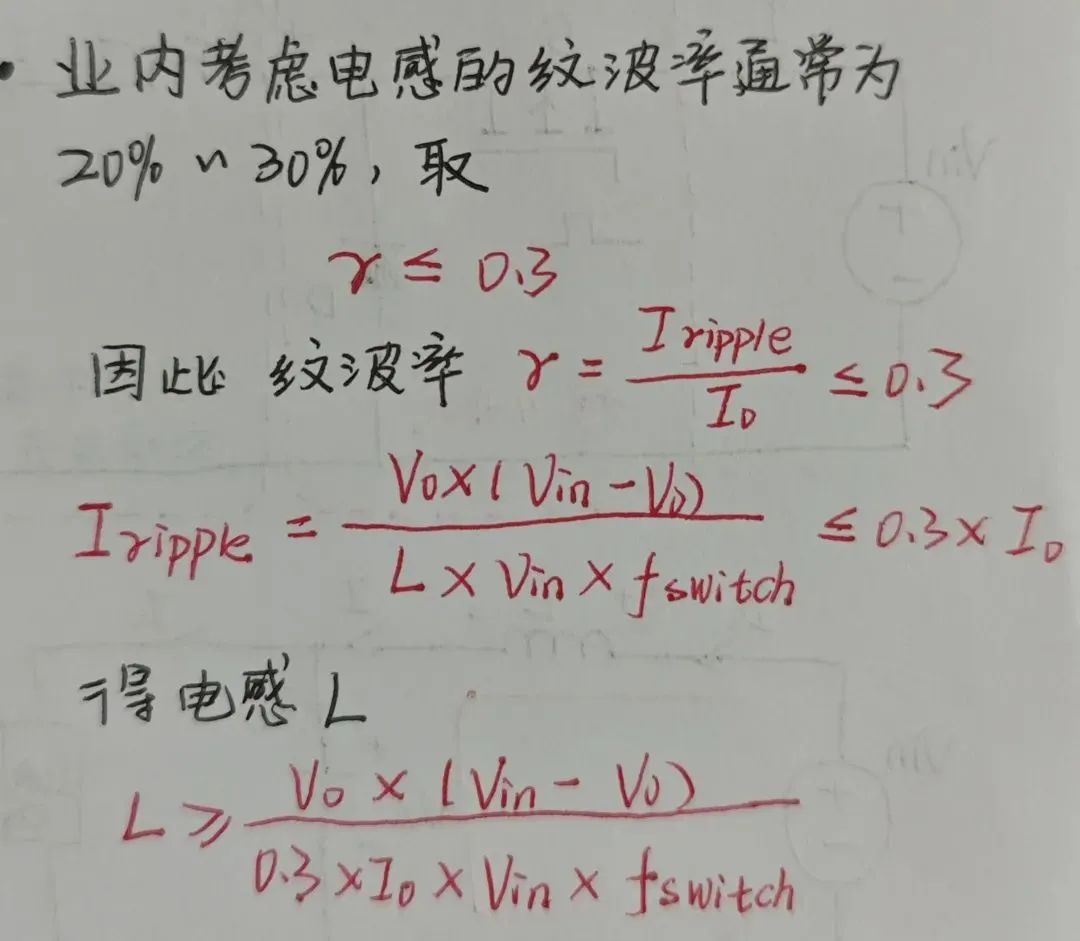 • 业内考虑电感的纹波率通常为
20% ~ 30%, 取
r ≤ 0.3
因此 纹波率 r = Iripple / Io ≤ 0.3
Iripple = Vo×(Vin-Vo) / L×Vin×fswitch ≤ 0.3×Io
得电感L
L ≥ Vo×(Vin-Vo) / 0.3×Io×Vin×fswitch